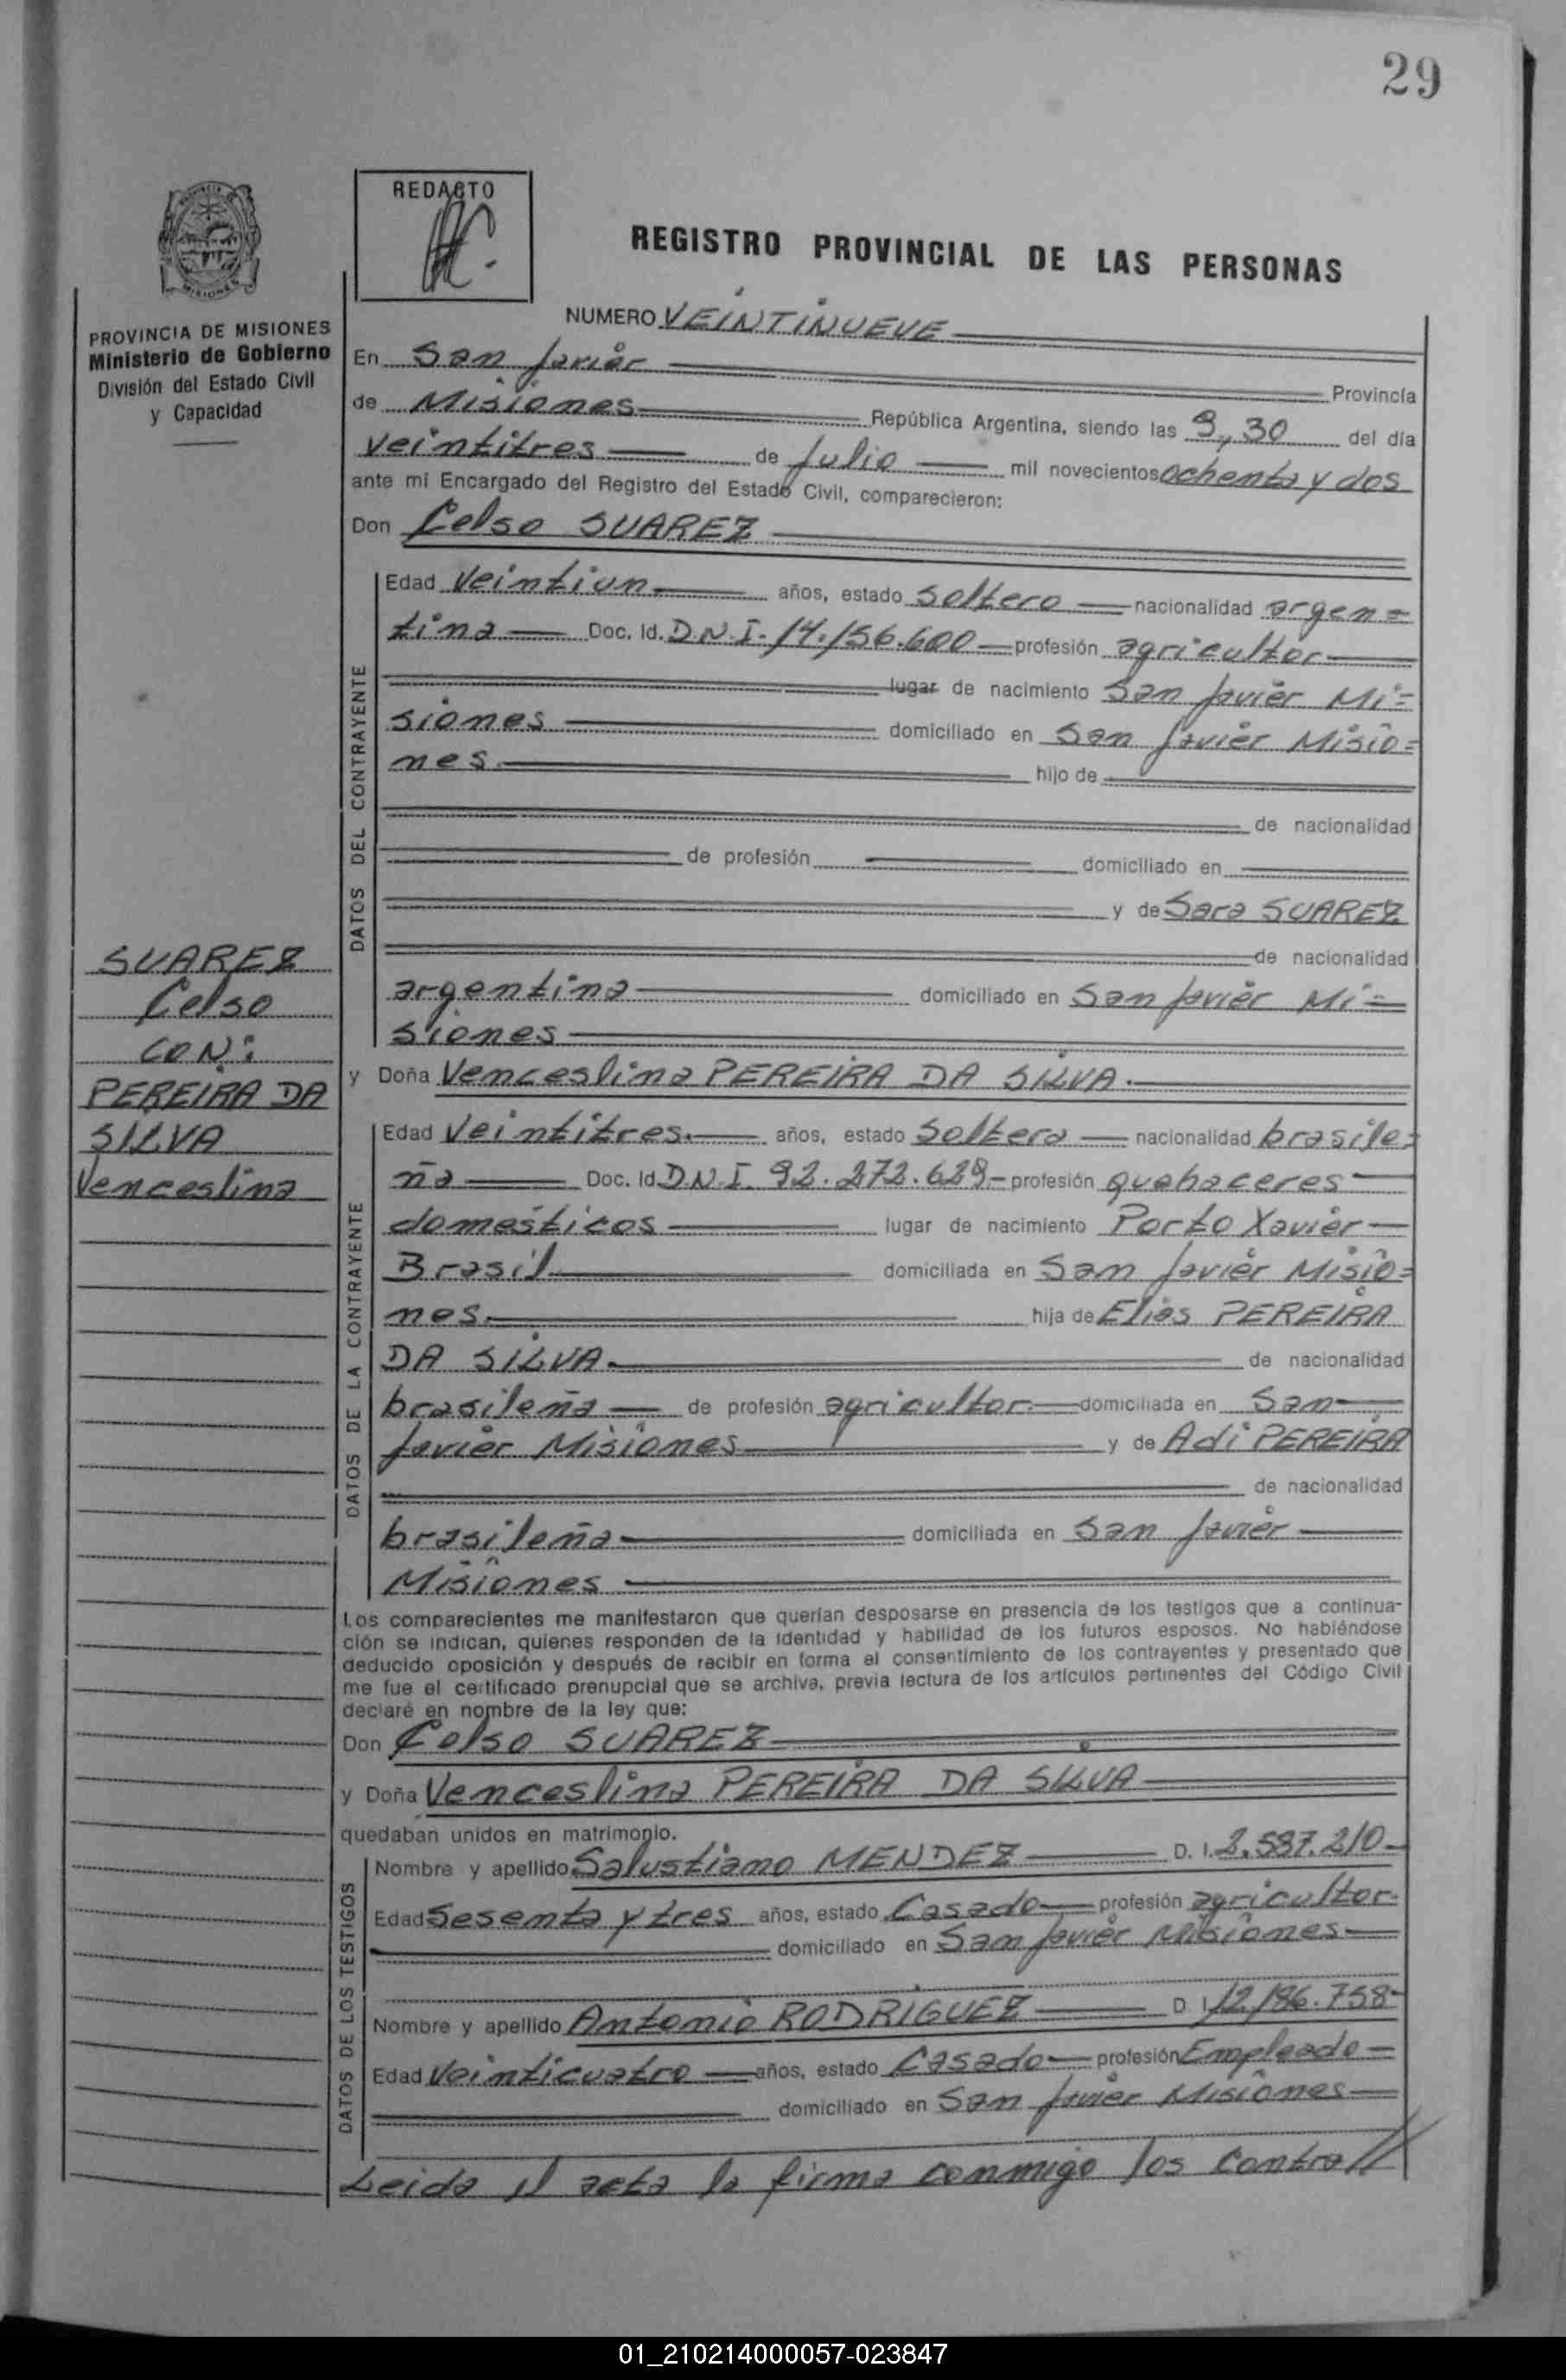 29
REDACTO
REGISTRO PROVINCIAL DE LAS PERSONAS
PROVINCIA DE MISIONES
Ministerio de Gobierno
División del Estado Civil
y Capacidad
NUMERO VEINTINUEVE
En San Javier Provincia
de Misiones República Argentina, siendo las 9,30 del día
veintitres de Julio mil novecientos ochenta y dos
ante mí Encargado del Registro del Estado Civil, comparecieron:
Don Celso SUAREZ
DATOS DEL CONTRAYENTE
Edad Veintiun años, estado Soltero nacionalidad argen=
tina Doc. Id. D.N.I. 14.156.600 profesión agricultor
lugar de nacimiento San Javier Mi=
siones domiciliado en San Javier Misio=
nes. hijo de
de nacionalidad
de profesión domiciliado en
y de Sara SUAREZ
de nacionalidad
argentina domiciliado en San Javier Mi=
siones
SUAREZ
Celso
CON:
PEREIRA DA
SILVA
Venceslina
y Doña Venceslina PEREIRA DA SILVA.
DATOS DE LA CONTRAYENTE
Edad Veintitres. años, estado Soltera nacionalidad brasile=
ña Doc. Id. D.N.I. 92.272.629 profesión quehaceres
domesticos lugar de nacimiento Porto Xavier
Brasil domiciliada en San Javier Misio=
nes. hija de Elias PEREIRA
DA SILVA. de nacionalidad
brasileña de profesión agricultor. domiciliada en San
Javier Misiones y de Adi PEREIRA
de nacionalidad
brasileña domiciliada en San Javier
Misiones
Los comparecientes me manifestaron que querían desposarse en presencia de los testigos que a continua-
ción se indican, quienes responden de la identidad y habilidad de los futuros esposos. No habiéndose
deducido oposición y después de recibir en forma el consentimiento de los contrayentes y presentado que
me fue el certificado prenupcial que se archiva, previa lectura de los artículos pertinentes del Código Civil
declaré en nombre de la ley que:
Don Celso SUAREZ
y Doña Venceslina PEREIRA DA SILVA
quedaban unidos en matrimonio.
DATOS DE LOS TESTIGOS
Nombre y apellido Salustiano MENDEZ D. I. 2.587.210
Edad Sesenta y tres años, estado Casado profesión agricultor.
domiciliado en San Javier Misiones
Nombre y apellido Antonio RODRIGUEZ D. I. 12.186.758
Edad Veinticuatro años, estado Casado profesión Empleado
domiciliado en San Javier Misiones
Leida el acta la firma conmigo los contra//
01_210214000057-023847